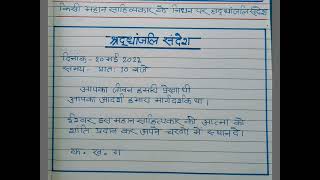 किसी महान साहित्यकार के निधन पर श्रद्धांजलि संदेश
श्रद्धांजलि संदेश
दिनांक - 20 मई 2022
समय - प्रातः 10 बजे
आपका जीवन हमारी प्रेरणा थी
आपका आदर्श हमारा मार्गदर्शक था।
ईश्वर इस महान साहित्यकार की आत्मा को
शांति प्रदान कर अपने चरणों में स्थान दे।
क. ख. ग